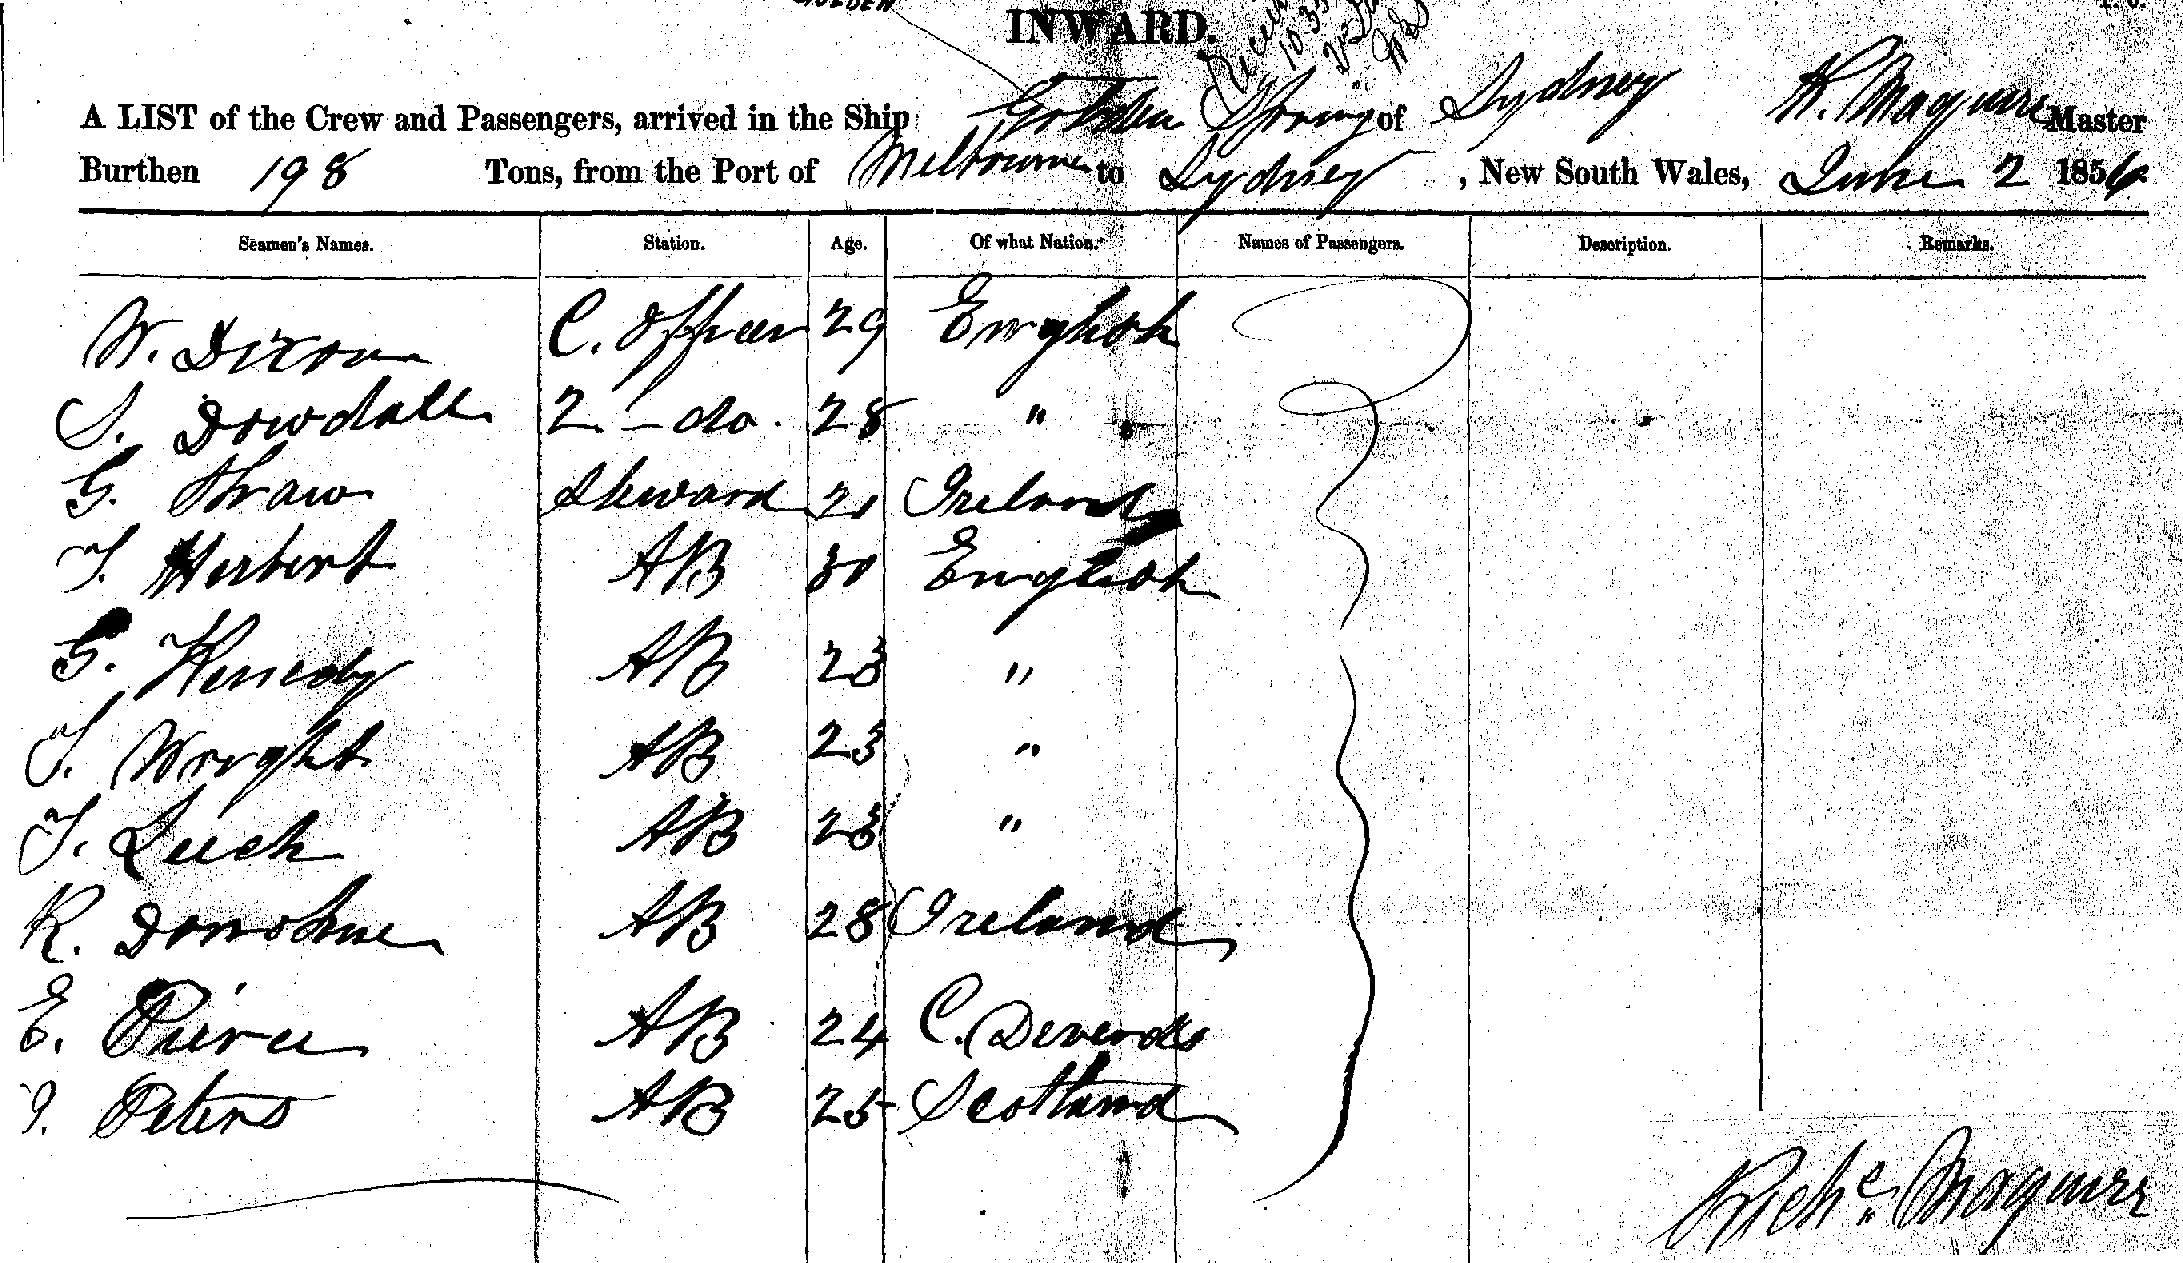 GOLDEN
INWARD.
A LIST of the Crew and Passengers, arrived in the Ship Golden Spring of Sydney R. Maguire Master
Burthen 198 Tons, from the Port of Melbourne to Sydney, New South Wales, June 2 1856
Seamen's Names. Station. Age. Of what Nation. Names of Passengers. Description. Remarks.
W. Dixon C. Officer 29 English
S. Dowdall 2 - do. 28 "
G. Thraw Steward 21 Ireland
T. Herbert AB 30 English
G. Kenedy AB 23 "
T. Wright AB 23 "
T. Leech AB 23 "
R. Donohue AB 28 Ireland
E. Peirce AB 24 C. Deverds
J. Peters AB 25 Scotland
Richd. Maguire